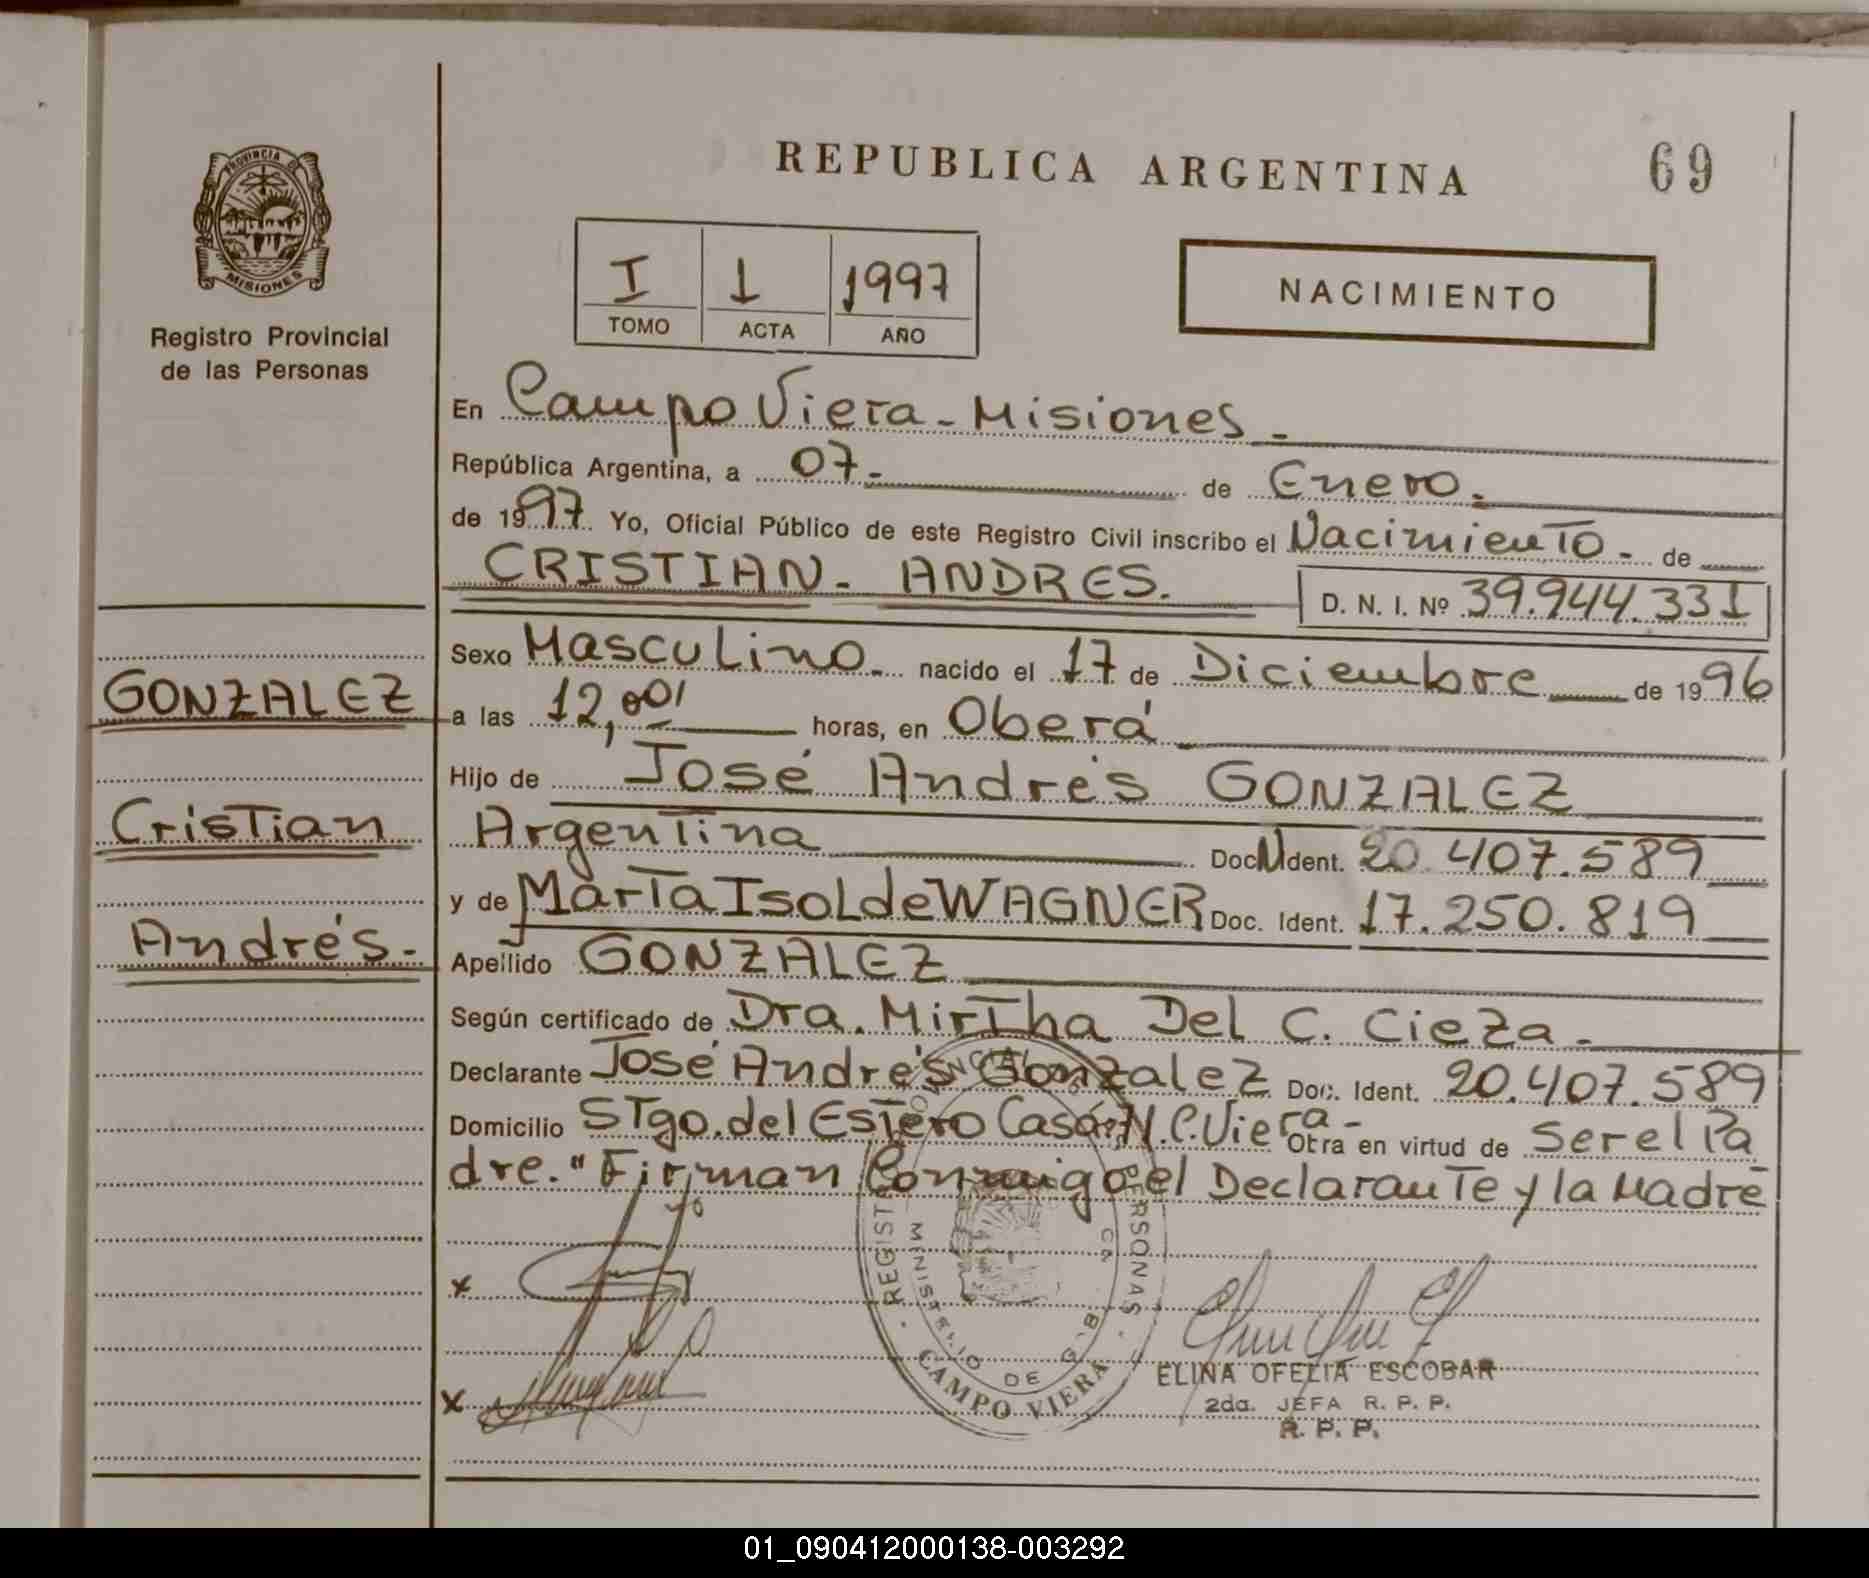 REPUBLICA ARGENTINA
69
PROVINCIA DE
MISIONES
Registro Provincial
de las Personas
I 1 1997
TOMO ACTA AÑO
NACIMIENTO
En Campo Viera - Misiones -
República Argentina, a 07- de Enero.
de 1997 Yo, Oficial Público de este Registro Civil inscribo el Nacimiento - de
CRISTIAN - ANDRES. D. N. I. Nº 39.944.331
Sexo Masculino - nacido el 17 de Diciembre de 1996
GONZALEZ
a las 12,00 horas, en Oberá
Hijo de José Andrés GONZALEZ
Cristian
Argentina Doc. Ident. 20.407.589
y de Marta Isolde WAGNER Doc. Ident. 17.250.819
Andrés -
Apellido GONZALEZ
Según certificado de Dra. Mirtha Del C. Cieza -
Declarante José Andrés Gonzalez Doc. Ident. 20.407.589
Domicilio Stgo. del Estero Casa C. Viera - Otra en virtud de ser el Pa
dre. " Firman Conmigo el Declarante y la Madre
x
x
REGIST PERSONAS
MINISTERIO DE G-B-
CAMPO VIERA
ELINA OFELIA ESCOBAR
2da. JEFA R. P. P.
R. P. P.
01_090412000138-003292